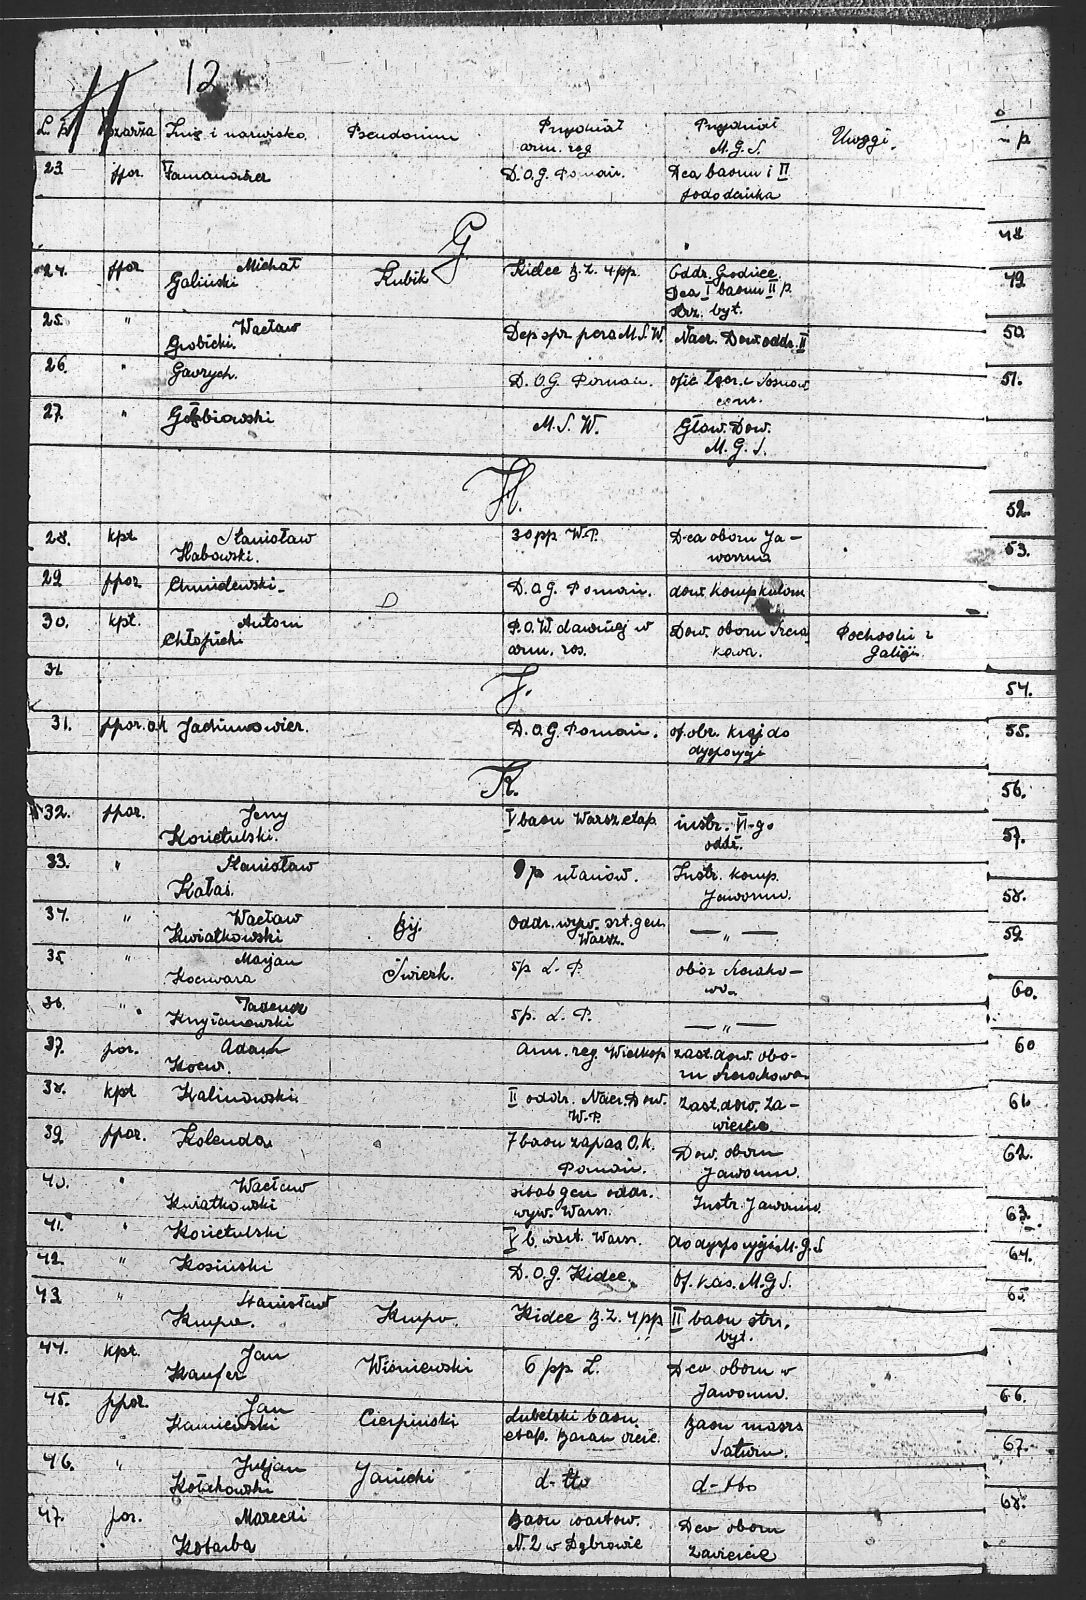 12
L. Szarża Imię i nazwisko Pseudonim Przydział arm. reg Przydział M.G.S. Uwagi.
23. ppor. D.O.G. Poznań. Dca baonu i II
48
G
24. ppor Michał Galiński Kubik Kielce B.Z. 4pp. Oddr. Grodziec. Dca I baonu II p. strz. byt.
49
25. " Wacław Grobicki. Dep spr pers M.S.W. Nacz. Dow. oddz. II
50
26. " Gavrych. D.O.G. Poznań.
51.
27. " Gołębiowski M.S.W. Głow. Dow. M.G.S.
H.
52.
28. kpt Stanisław Habowski. 30 pp W.P. D-ca obozu Ja-
53.
29. ppor Chmielewski D.O.G. Poznań. dow. komp
30. kpt. Antoni Chłopicki P.O.W dawniej w arm. ros. Dow. obozu Pochodzi z Galicji.
31
J.
54.
31. ppor. Jachimowicz. D.O.G. Poznań. of. obz. do dyspozycji
55.
K.
56.
32. ppor. Jerzy Kozietulski. V baon Warsz etap instr. VI-go oddz.
57.
33. " Stanisław Kałas. 9 p ułanów. Instr. komp. Jaworzn.
58.
34. " Wacław Kwiatkowski Oddr. wyw. szt. gen. Warsz. — " —
59.
35. " Marjan Koczwara Świerk. 5p L.P. obóz Szczako-wa
60.
36. " Tadeusz 5p. L.P. — " —
37. por. Adam Kocur. Arm. reg. Wielkop zast. dow. obo-zu Szczakowa
60
38. kpt Kalinowski II oddz. Nacz. Dow. W.P. Zast. dow. Za-wiercie
61.
39 ppor. Kolenda 7 baon zapas O.K. Poznań. Dow. obozu Jaworzn.
62.
40. " Wacław Kwiatkowski sztab gen oddz. wyw. Warsz. Instr. Jaworzn.
63.
41. " Kozietulski V b. wart. Warsz. do dyspozycji M.G.S
64.
42. " Kosiński D.O.G. Kielce. Of. kas. M.G.S.
65.
43 " Stanisław Krupa. Krupa. Kielce B.Z. 4pp II baon strz. byt.
44. kpt. Jan Kaufer Wiśniewski 6 pp L. Dca obozu w Jaworzn.
66.
45. ppor. Jan Kaniewski Cierpiński Lubelski baon etap. Baon masrs Saturn.
67.
46. " Juljan Kołakowski Janicki d-tto d-tto
68.
47. por. Marecki Kotarba Baon wartow. N.2 w Dąbrowie Dca obozu Zawiercie